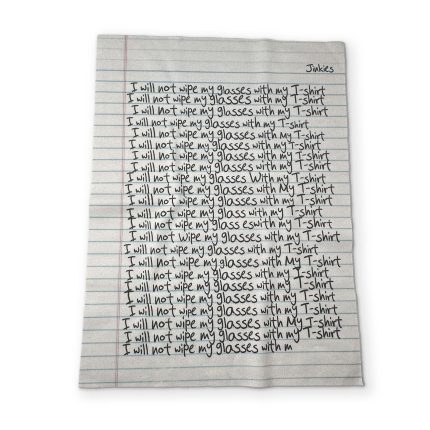 Jinkies
I will not wipe my glasses with my T-shirt
I will not wipe my glasses with my T-shirt
I will not wipe my glasses with my T-shirt
I will not wipe my glasses with my T-shirt
I will not wipe my glasses with my T-shirt
I will not wipe my glasses with my T-shirt
I will not wipe my glasses with my T-shirt
I will not wipe my glasses with my T-shirt
I will not wipe my glasses With my T-shirt
I will not wipe my glasses with My T-shirt
I will not wipe my glasses with my T-shirt
I will not wipe my glasses with my T-shirt
I will not wipe my glass eswith my T-shirt
I will not wipe my glasses with my T-shirt
I will not wipe my glasses with my T-shirt
I will not wipe my glasses with My T-shirt
I will not wipe my glasses with my T-shirt
I will not wipe my glasses with my T-shirt
I will not wipe my glasses with my T-shirt
I will not wipe my glasses with my T-shirt
I will not wipe my glasses with My T-shirt
I will not wipe my glasses with my T-shirt
I will not wipe my glasses with m